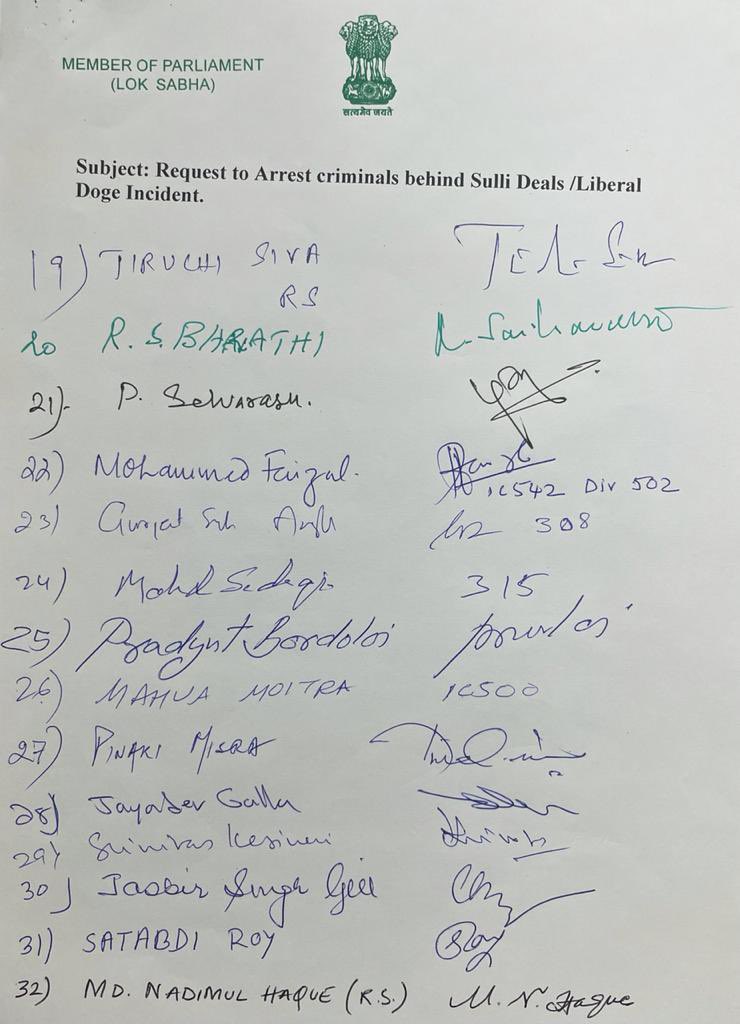 MEMBER OF PARLIAMENT
(LOK SABHA)
सत्यमेव जयते
Subject: Request to Arrest criminals behind Sulli Deals /Liberal
Doge Incident.
19) TIRUCHI SIVA
RS
20 R. S. BHARATHI
21). P. Selvarasu.
22) Mohammed Faizal.
IC542 Div 502
23) 308
24) Mohd 315
25) Pradyut Bordoloi
26) MAHUA MOITRA IC500
27) PINAKI MISRA
28) Jayadev Galla
29) Srinivas Kesineni
30) Jasbir Singh Gill
31) SATABDI ROY Roy
32) MD. NADIMUL HAQUE (R.S.) M. N. Haque